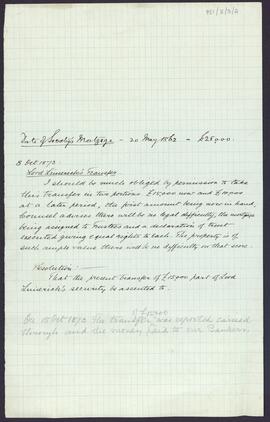 P51/3/3/2
Date of Society's Mortgage - 20 May 1862 - £25000.
8 Oct 1872.
Lord Limerick's Transfer
I should be much obliged by permission to take
this Transfer in two portions £15,000 now and £10,000
at a later period, the first amount being now in hand.
Counsel advises there will be no legal difficulty, the mortgage
being assigned to Trustees and a declaration of trust
executed giving equal rights to each. The property is of
such ample value there will be no difficulty on that score.
Resolution.
That the present transfer of £15000 part of Lord
Limerick's security be assented to.
of £15000
On 15 Oct 1872 the transfer was reported carried
through and the money paid to our Bankers.